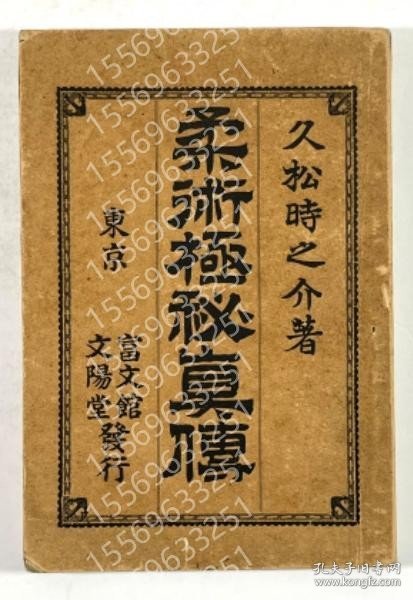 久松時之介著
柔術極秘真傳
東京
富文館
文陽堂
發行
15569633251
15569633251
15569633251
15569633251
15569633251
15569633251
孔夫子旧书网
www.kongfz.com